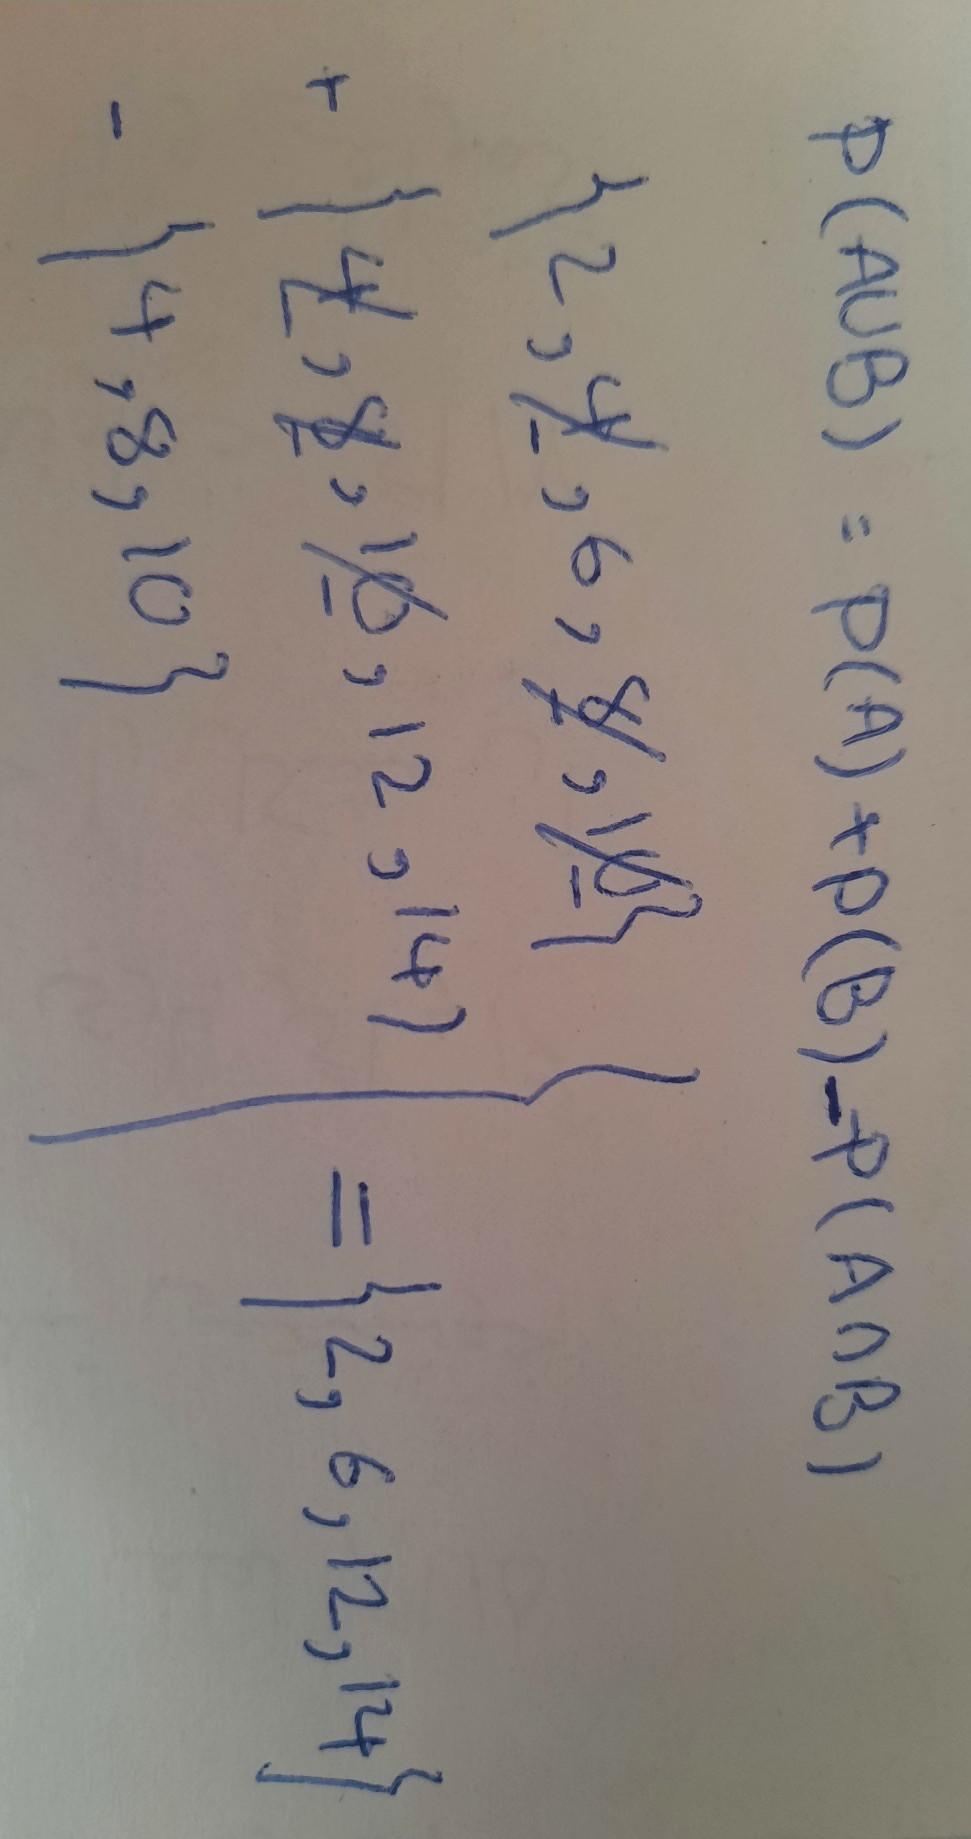 P(AUB) = P(A) + P(B) - P(A∩B)
{2, 4, 6, 8, 10}
+ {4, 8, 10, 12, 14} = {2, 6, 12, 14}
- {4, 8, 10}